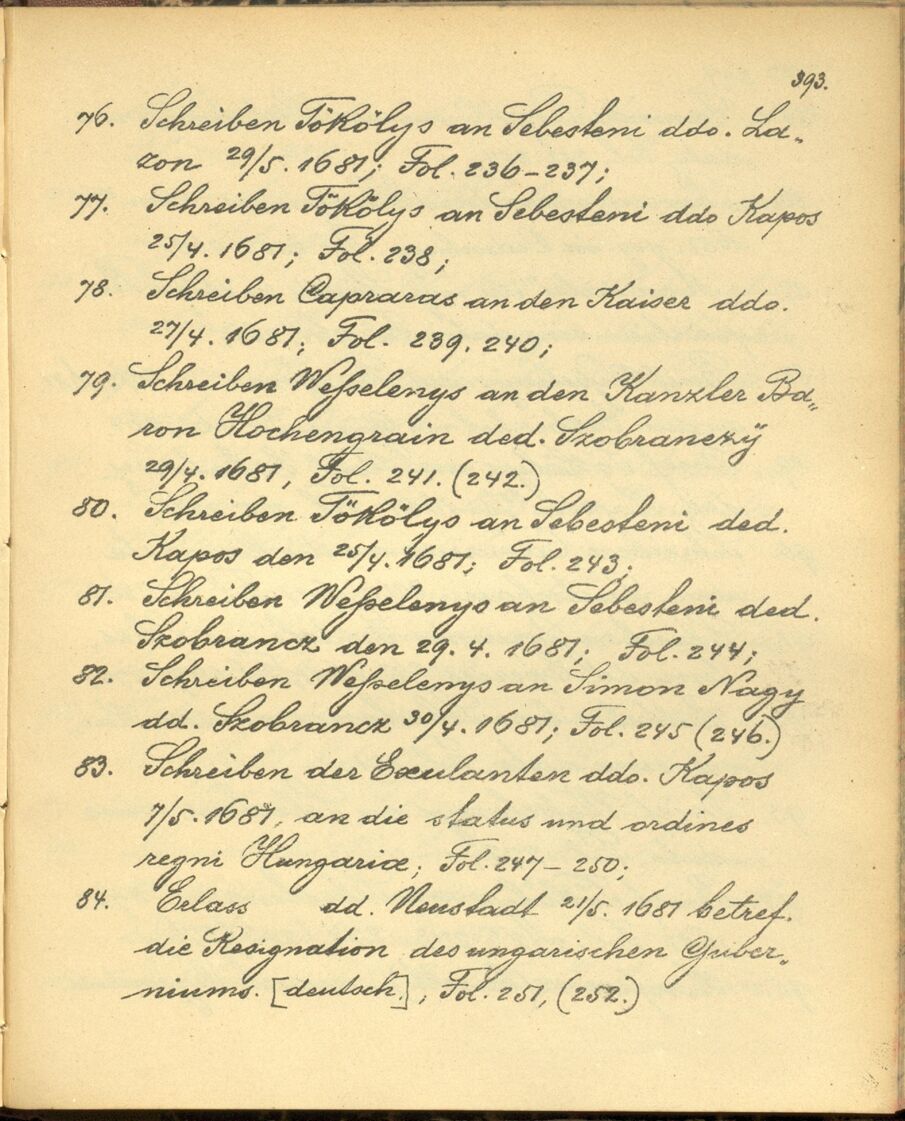 393.
76. Schreiben Tökölys an Sebesteni ddo. La„
zon 29/5. 1681; Fol. 236–237;
77. Schreiben Tökölys an Sebesteni ddo Kapos
25/4. 1681; Fol. 238;
78. Schreiben Capraras an den Kaiser ddo.
27/4. 1681; Fol. 239. 240;
79. Schreiben Weßelenys an den Kanzler Ba„
ron Hochengrain ded. Szobranczÿ
29/4. 1681, Fol. 241. (242.)
80. Schreiben Tökölys an Sebesteni ded.
Kapos den 25/4. 1681; Fol. 243;
81. Schreiben Weßelenys an Sebesteni ded.
Szobrancz den 29. 4. 1681; Fol. 244;
82. Schreiben Weßelenys an Simon Nagy
dd. Szobrancz 30/4. 1681; Fol. 245 (246.)
83. Schreiben der Exulanten ddo. Kapos
7/5. 1681, an die status und ordines
regni Hungariæ; Fol. 247–250;
84. Erlass dd. Neustadt 21/5. 1681 betref.
die Resignation des ungarischen Guber„
niums. [deutsch.], Fol. 251, (252.)